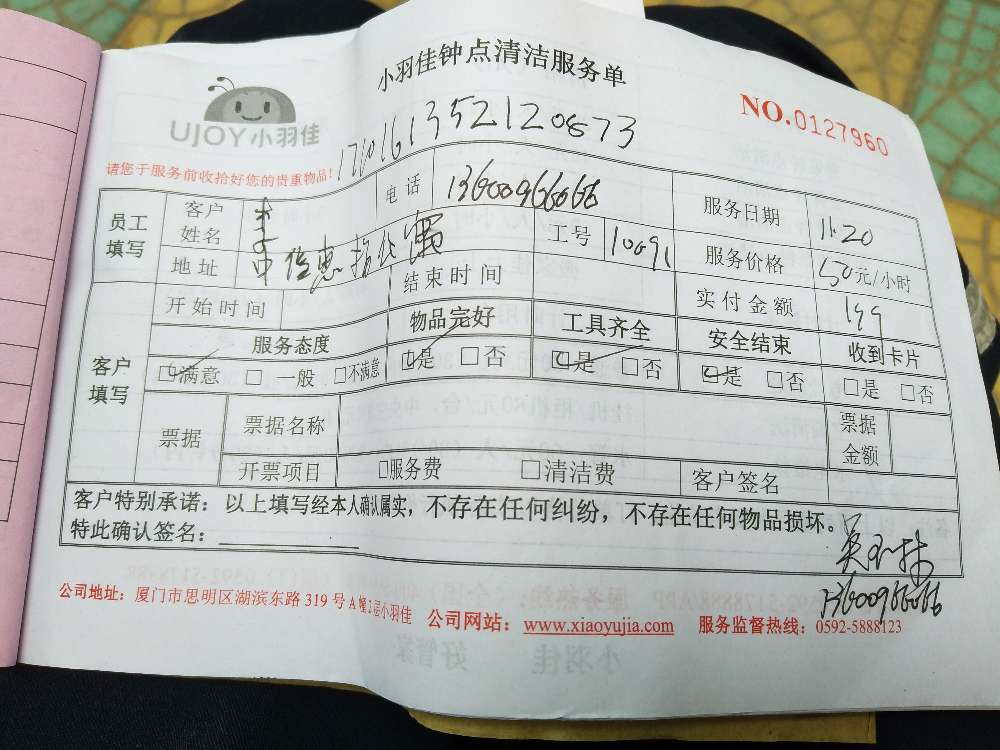 小羽佳钟点清洁服务单
UJOY小羽佳
NO.0127960
请您于服务前收拾好您的贵重物品!
员工填写 客户姓名 电话 13600966666 服务日期 11.20
地址 中信惠扬大厦 工号 10691 服务价格 50元/小时
客户填写 开始时间 结束时间 实付金额 199
服务态度 物品完好 工具齐全 安全结束 收到卡片
□满意 □一般 □不满意 □是 □否 □是 □否 □是 □否 □是 □否
票据 票据名称 票据金额
开票项目 □服务费 □清洁费 客户签名
客户特别承诺：以上填写经本人确认属实，不存在任何纠纷，不存在任何物品损坏。
特此确认签名：
13600966666
公司地址：厦门市思明区湖滨东路 319 号 A 幢2层小羽佳 公司网站：www.xiaoyujia.com 服务监督热线：0592-5888123